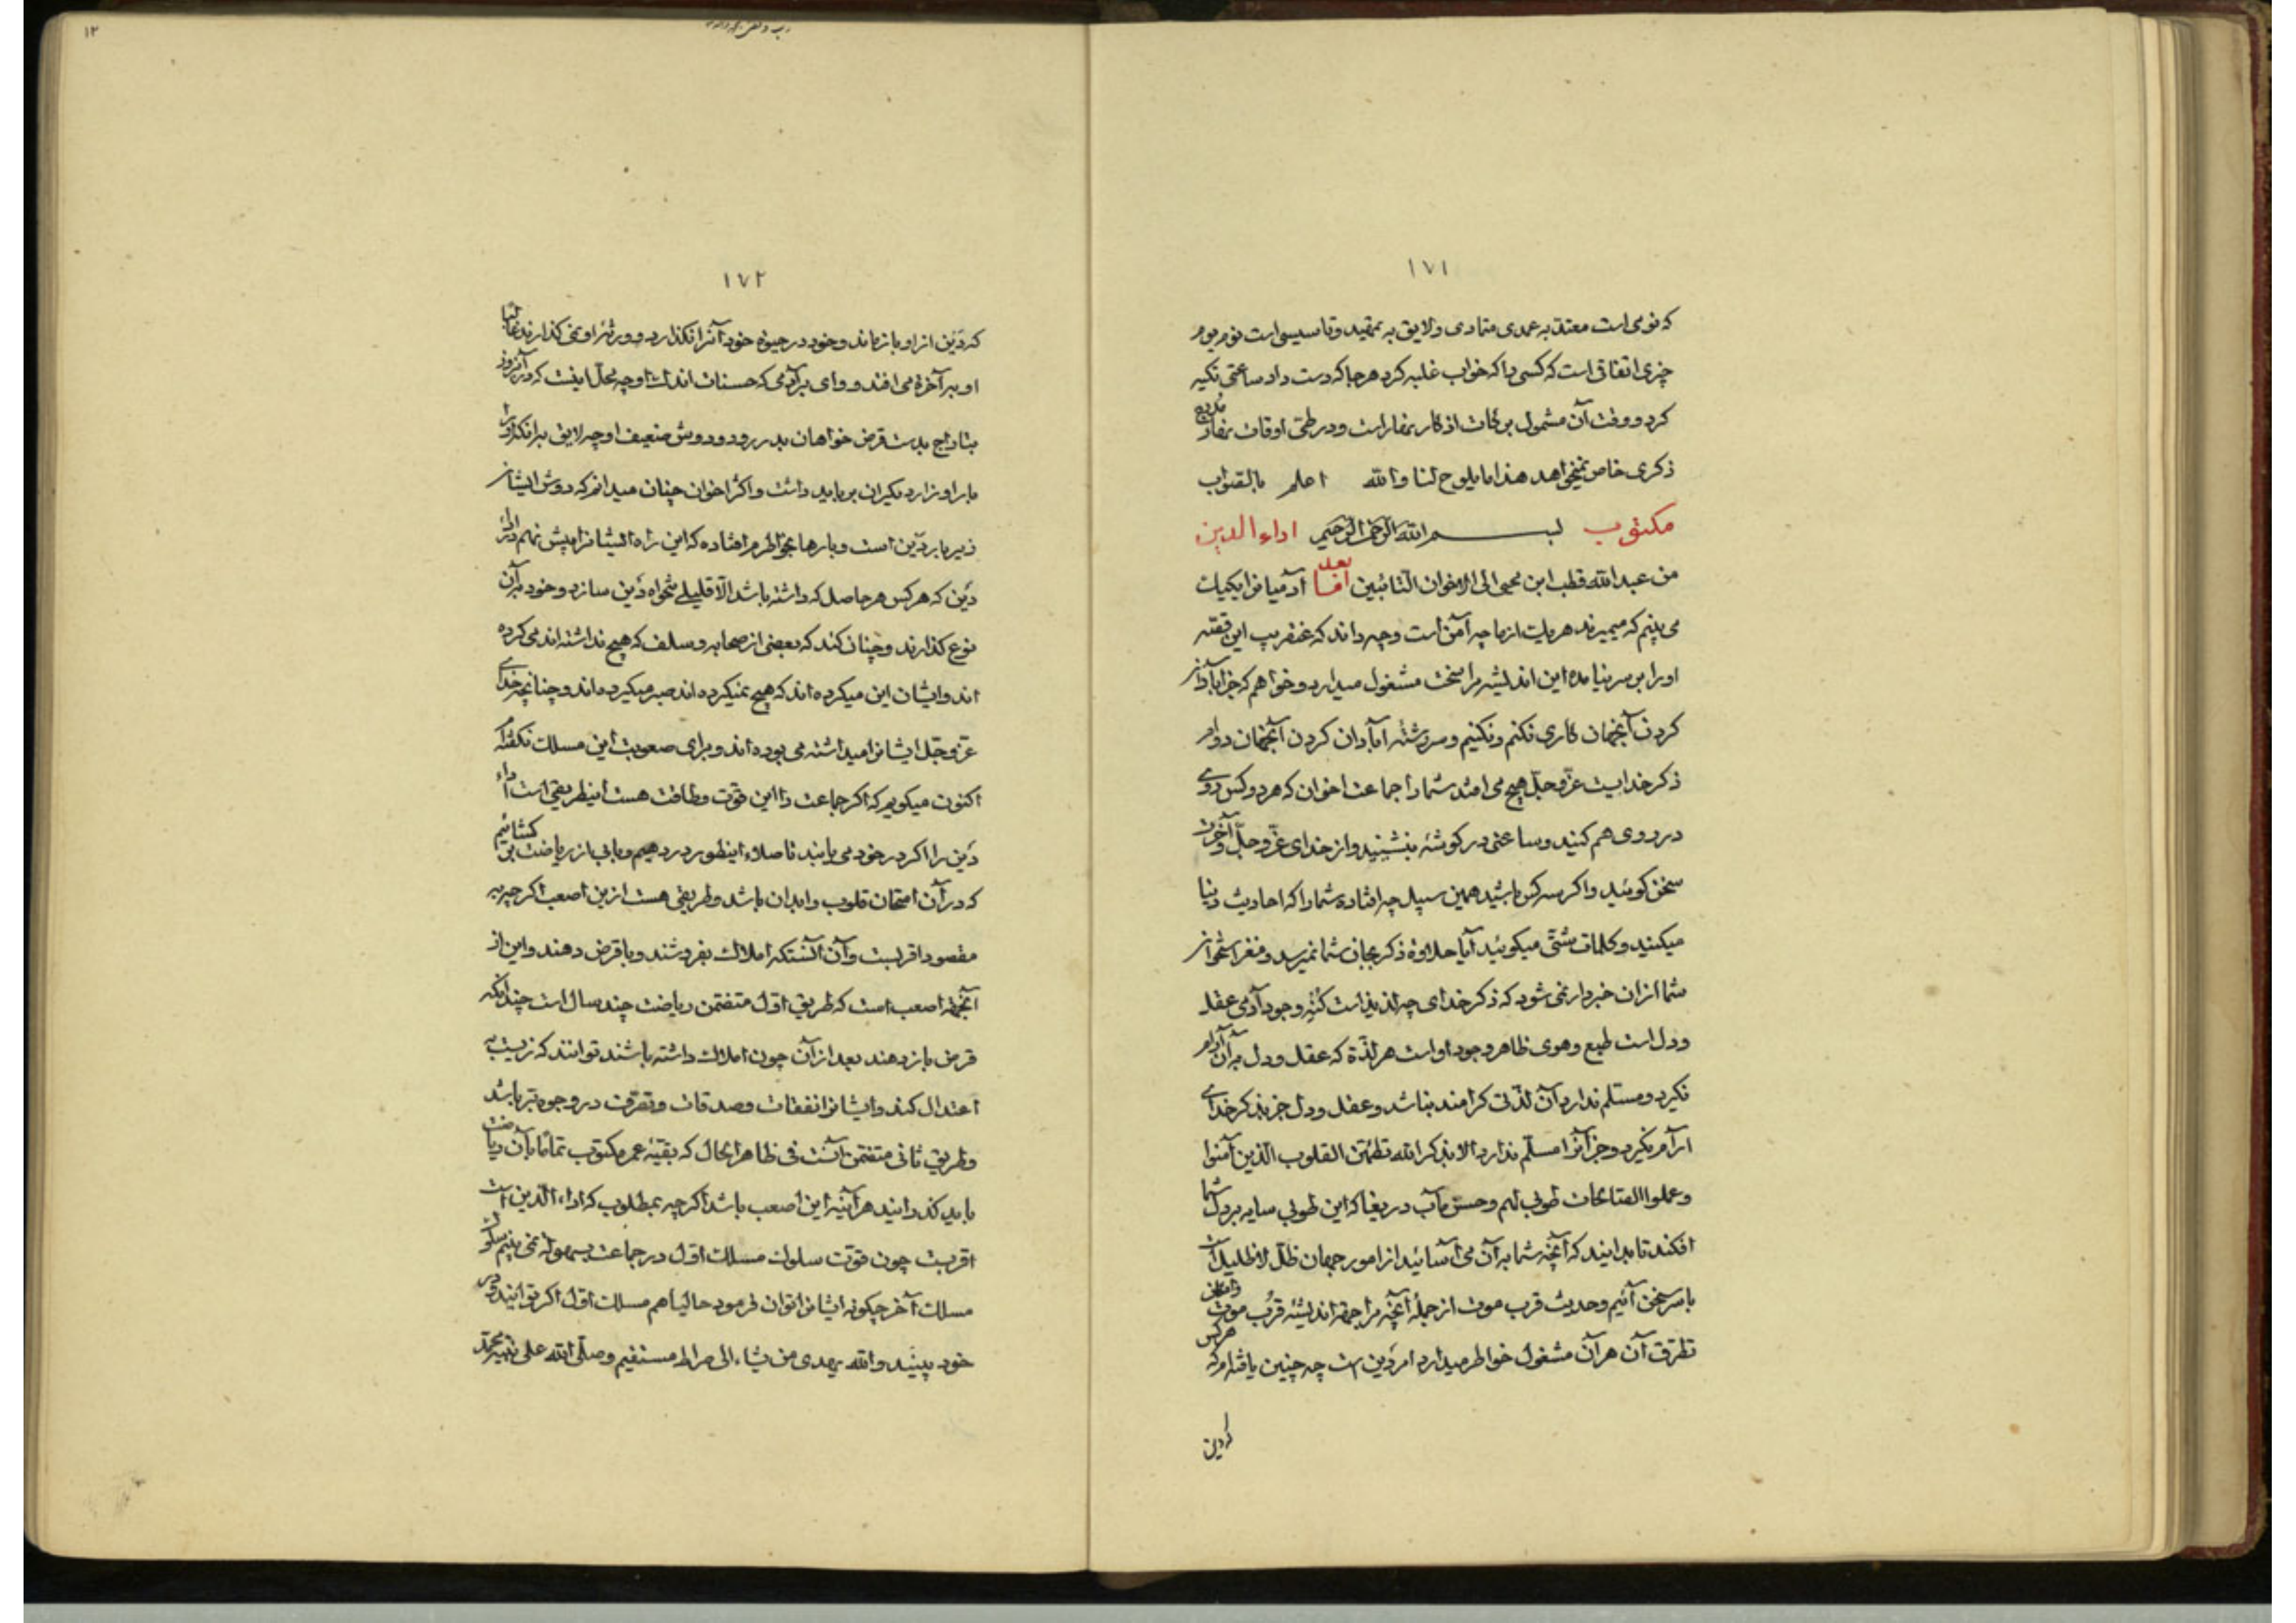 ۱۷۱
که نومی است معتد به عمدی متمادی ولایق به تمقید وتاسیسی است نوم یوم
چیزی اتفاق است که کسی را که خواب غلبه کرد هر جا که دست داد ساعتی تکیه
کرد و وقت آن مشمول برکات اذکار نمفار است ودر طی اوقات
ذکری خاص نمیخواهد هذا ما یلوح لنا والله اعلم بالصواب
مکتوب بسم الله الرحمن الرحیم اداء الدین
من عبدالله قطب ابن محیی الی الاخوان التائبین اما بعد آدمیانرا یکیک
می بینم که میمیرند هر یک از ما چه آمن است وچه داند که عنقریب این قصه
اورا بر سر نیامده این اندیشه مرا سخت مشغول میدارد وخواهم که جز آبادان
کردن آنجهان کاری نکنم ونکنیم وسررشته آبادان کردن آنجهان دوام
ذکر خدایست عز وجل هیچ می افتد شما را جماعت اخوان که هر دو کس روی
در روی هم کنید وساعتی در گوشه بنشینید واز خدای عز وجل وآخرت
سخن گوئید واگر سه کس باشید همین سبیل چه افتاده شما را که احادیث دنیا
میکنید وکلمات شتی میگوئید آیا حلاوة ذکر بجان شما نمیرسد ومغز استخوان
شما ازان خبردار نمی شود که ذکر خدای چه لذیذ است کنه وجود آدمی عقل
ودل است طبع وهوی ظاهر وجود اوست هر لذة که عقل ودل به آن آرام
نگیرد ومسلم ندارد آن لذتی کرامند نباشد وعقل ودل جز بذکر خدای
آرام نگیرد وجز آنرا مسلم ندارد الا بذکر الله تطمئن القلوب الذین آمنوا
وعملوا الصالحات طوبی لهم وحسن مآب دریغا که این طوبی سایه بر دل شما
افکند تا بدانید که آنچه شما به آن می آسائید از امور جهان ظل لا ظلیل است
با سر سخن آئیم وحدیث قرب موت از جمله آنچه مرا جهة اندیشه قرب موت وامکان
تطرق آن هر آن مشغول خواطر میدارد امر دین است چه چنین یافته ام که هر کس
که دین
۱۷۲
که دین ازاو بازماند وخود در حیوة خود آنرا نگذارد وورثه او نمی گذارند غالبا
او به آخرة می افتد ووای بر آدمی که حسنات اندک او چه محل اینست که در آنروز
بتاراج بدست قرض خواهان بدر رود ودوش ضعیف او چه لایق بر انکه او را
بار اوزار دیگران بر باید داشت واکثر اخوان چنان میدانم که دوش ایشان
زیر بار دین است وبارها بخواطرم افتاده که این راه ایشانرا پیش نهم در اداء
دین که هر کس هر حاصل که داشته باشد الا قلیلی تنخواه دین سازد وخود بر آن
نوع گذارند وچنان کند که بعضی از صحابه وسلف که هیچ نداشته اند می کرده
اند وایشان این میکرده اند که هیچ نمیکرده اند صبر میکرده اند وچنانچه خدای
عز وجل ایشانرا میداشته می بوده اند وبرای صعوبت این مسلک نگفته ام
اکنون میگویم که اگر جماعت را این قوت وطاقت هست اینطریقی است اداء
دین را اگر در خود می یابند تا صلاء اینطور در دهیم وبابی از ریاضت بر کشائیم
که در آن امتحان قلوب وابدان باشد وطریقی هست ازین اصعب اگر چه به
مقصود اقربست وآن آنستکه املاک بفروشند وبا قرض دهند واین از
آنجهة اصعب است که طریق اول متضمن ریاضت چند سال است چندانکه
قرض باز دهند بعد از آن چون املاک داشته باشند توانند که زیست به
اعتدال کند وایشانرا نفقات وصدقات وتصرف در وجوه بر باشد
وطریق ثانی متضمن آنست فی ظاهر الحال که بقیه عمر مکتوب تماما بآن ریاضت
باید گذرانید هر آینه این اصعب باشد اگر چه بمطلوب که اداء الدین است
اقربست چون قوت سلوک مسلک اول در جماعت بسهولة نمی بینم سلوک
مسلک آخر چگونه ایشانرا توان فرمود حالیا هم مسلک اول اگر توانید در
خود ببینید والله یهدی من یشاء الی صراط مستقیم وصلی الله علی نبیه محمد